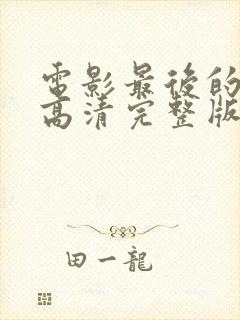 電影最後的
高清完整版
田一龍